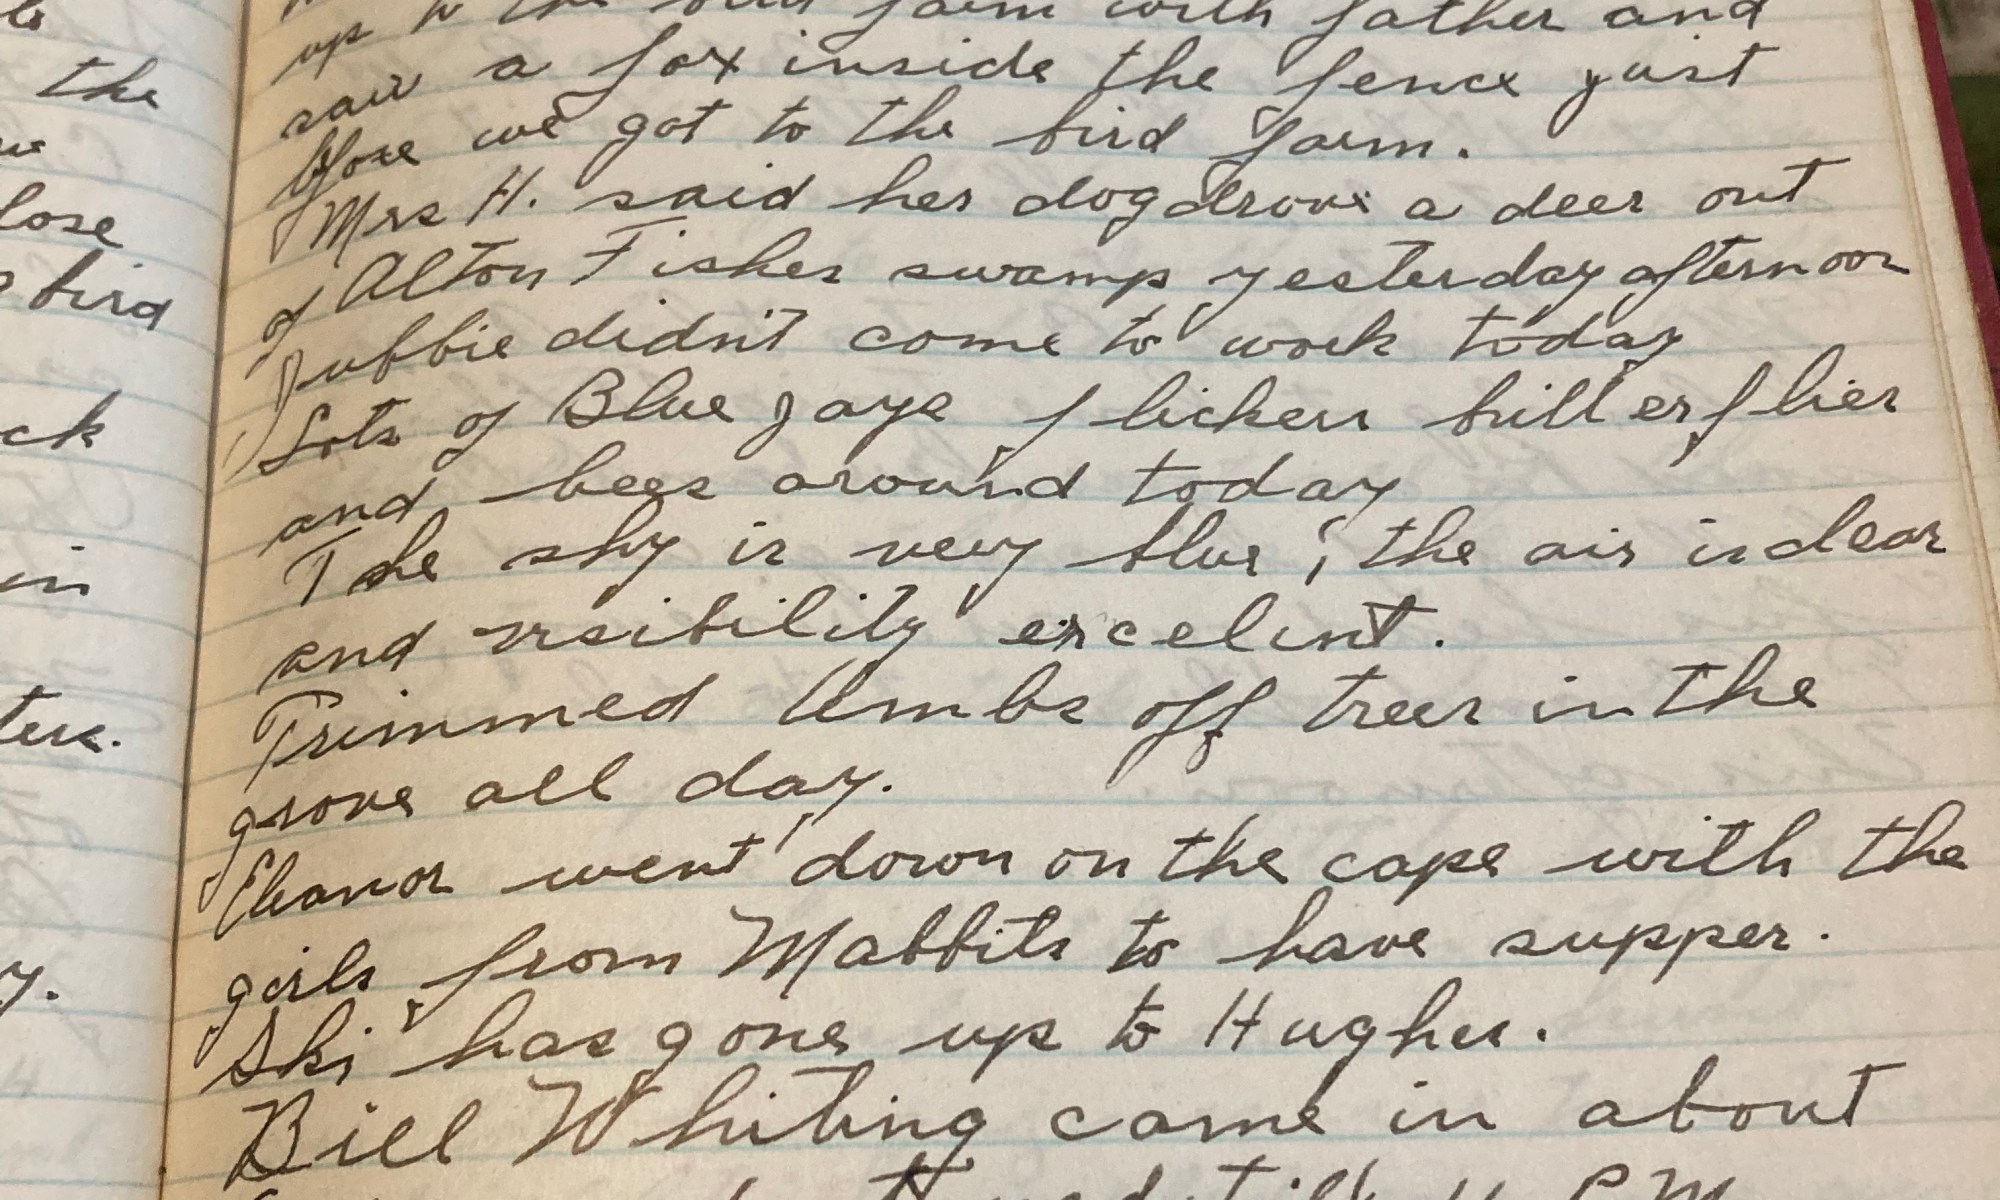 the
lose
bird
ck
in
y.
up to the bird farm with father and
saw a fox inside the fence just
before we got to the bird farm.
Mrs H. said her dog drove a deer out
of Alton Fisher swamp yesterday afternoon
didn't come to work today
Lots of Blue jays flickers butterflies
and bees around today
The sky is very blue; the air is clear
and visibility excelint.
Trimmed limbs off trees in the
grove all day.
Eleanor went down on the cape with the
girls from Mabbits to have supper.
Ski has gone up to Hughes.
Bill Whiting came in about
till 11 P.M.